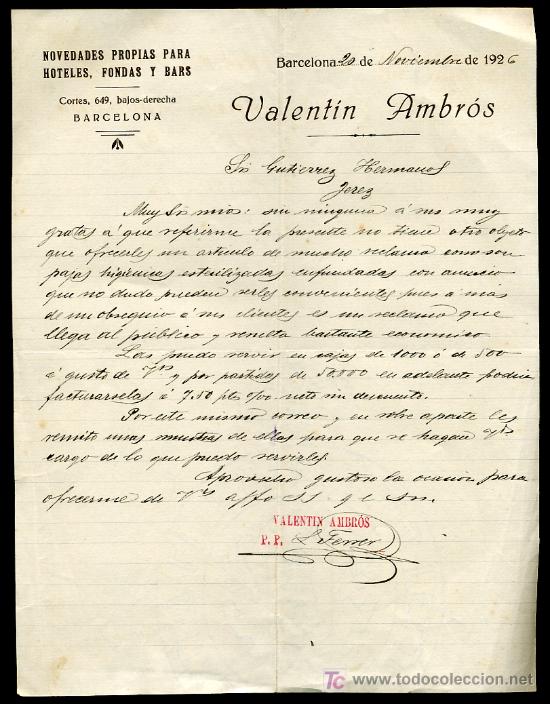 NOVEDADES PROPIAS PARA
HOTELES, FONDAS Y BARS
Cortes, 649, bajos-derecha
BARCELONA
Barcelona 20 de Noviembre de 1926
Valentín Ambrós
Srs Gutierrez Hermanos
Jerez
Muy Srs mios: sin ninguna á ms muy
gratas á que referirme la presente no tiene otro objeto
que ofrecerles un articulo de mucho reclamo como son
pajas higiénicas esterilizadas enfundadas con anuncio
que no dudo pueden serles convenientes pues á más
de un obsequio á sus clientes es un reclamo que
llega al público y resulta bastante economico
Las puedo servir en cajas de 1000 ó de 500
á gusto de Vds y por partidas de 50.000 en adelante podria
facturarselas á 7.50 pts o/oo neto sin descuento.
Por este mismo correo y en sobre aparte les
remito unas muestras de ellas para que se hagan Vds
cargo de lo que puedo servirles.
Aprovecho gustoso la ocasion para
ofrecerme de Vds affo SS q e s m
VALENTIN AMBRÓS
P. P. L Ferrer
TC www.todocoleccion.net